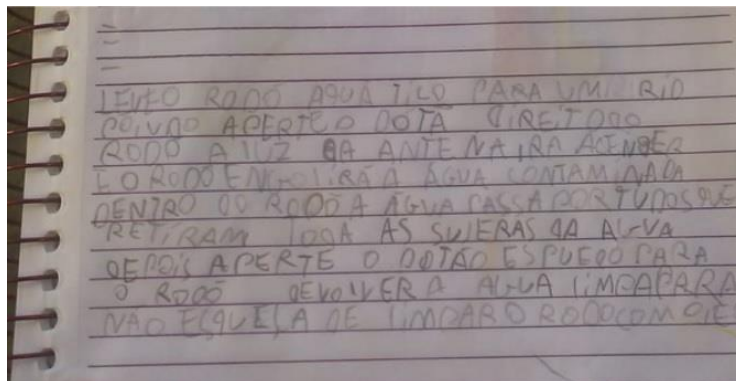 LEVEO RODO AQUATICO PARA UM RIO
POLUDO APERTE O BOTÃ DIREITO DO
RODO A LUZ DA ANTENA IRA ACENDER
E O RODO ENGOLIRÃ A ÁGUA CONTAMINADA
DENTRO DO RODO A ÁGUA PASSA POR TUDOS QUE
RETIRAM TODA AS SUJERAS DA AGUA
DEPOIS APERTE O BOTÃO ESPUEDO PARA
O RODO DEVOLVER A AGUA LIMPA PARA
NÃO ESQUEÇA DE LIMPAR O RODO COM